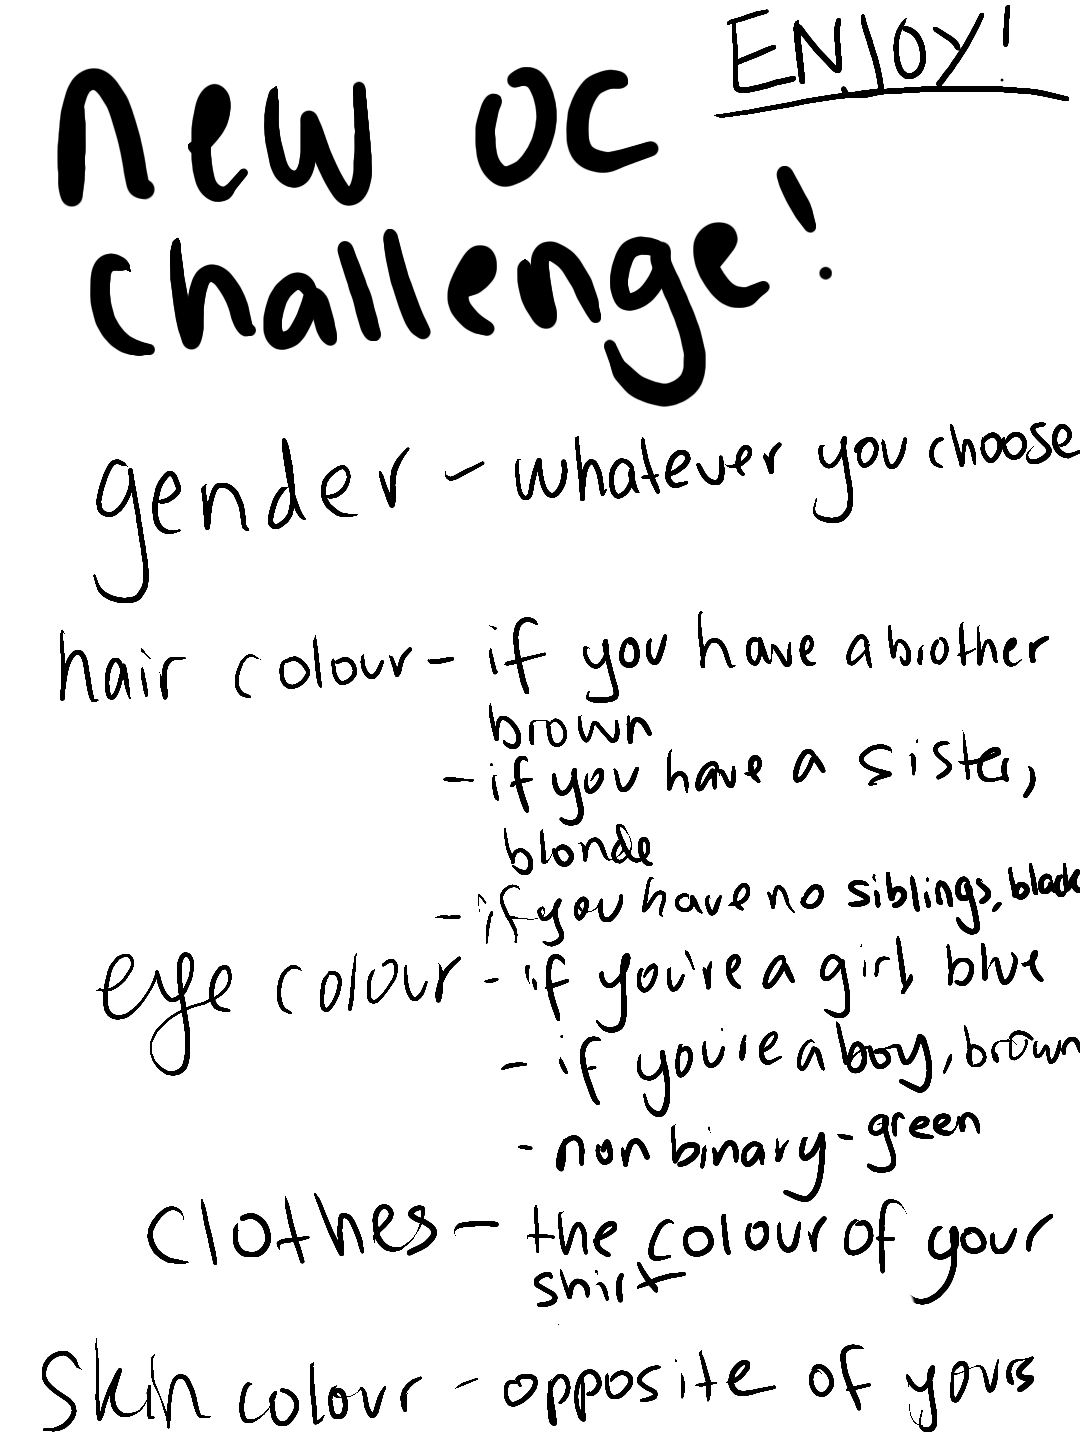 ENJOY!
new oc
challenge!
gender - whatever you choose
hair colour - if you have a brother
brown
- if you have a sister,
blonde
- if you have no siblings, black
eye colour - if you're a girl, blue
- if you're a boy, brown
- non binary - green
clothes - the colour of your
shirt
Skin colour - opposite of yours